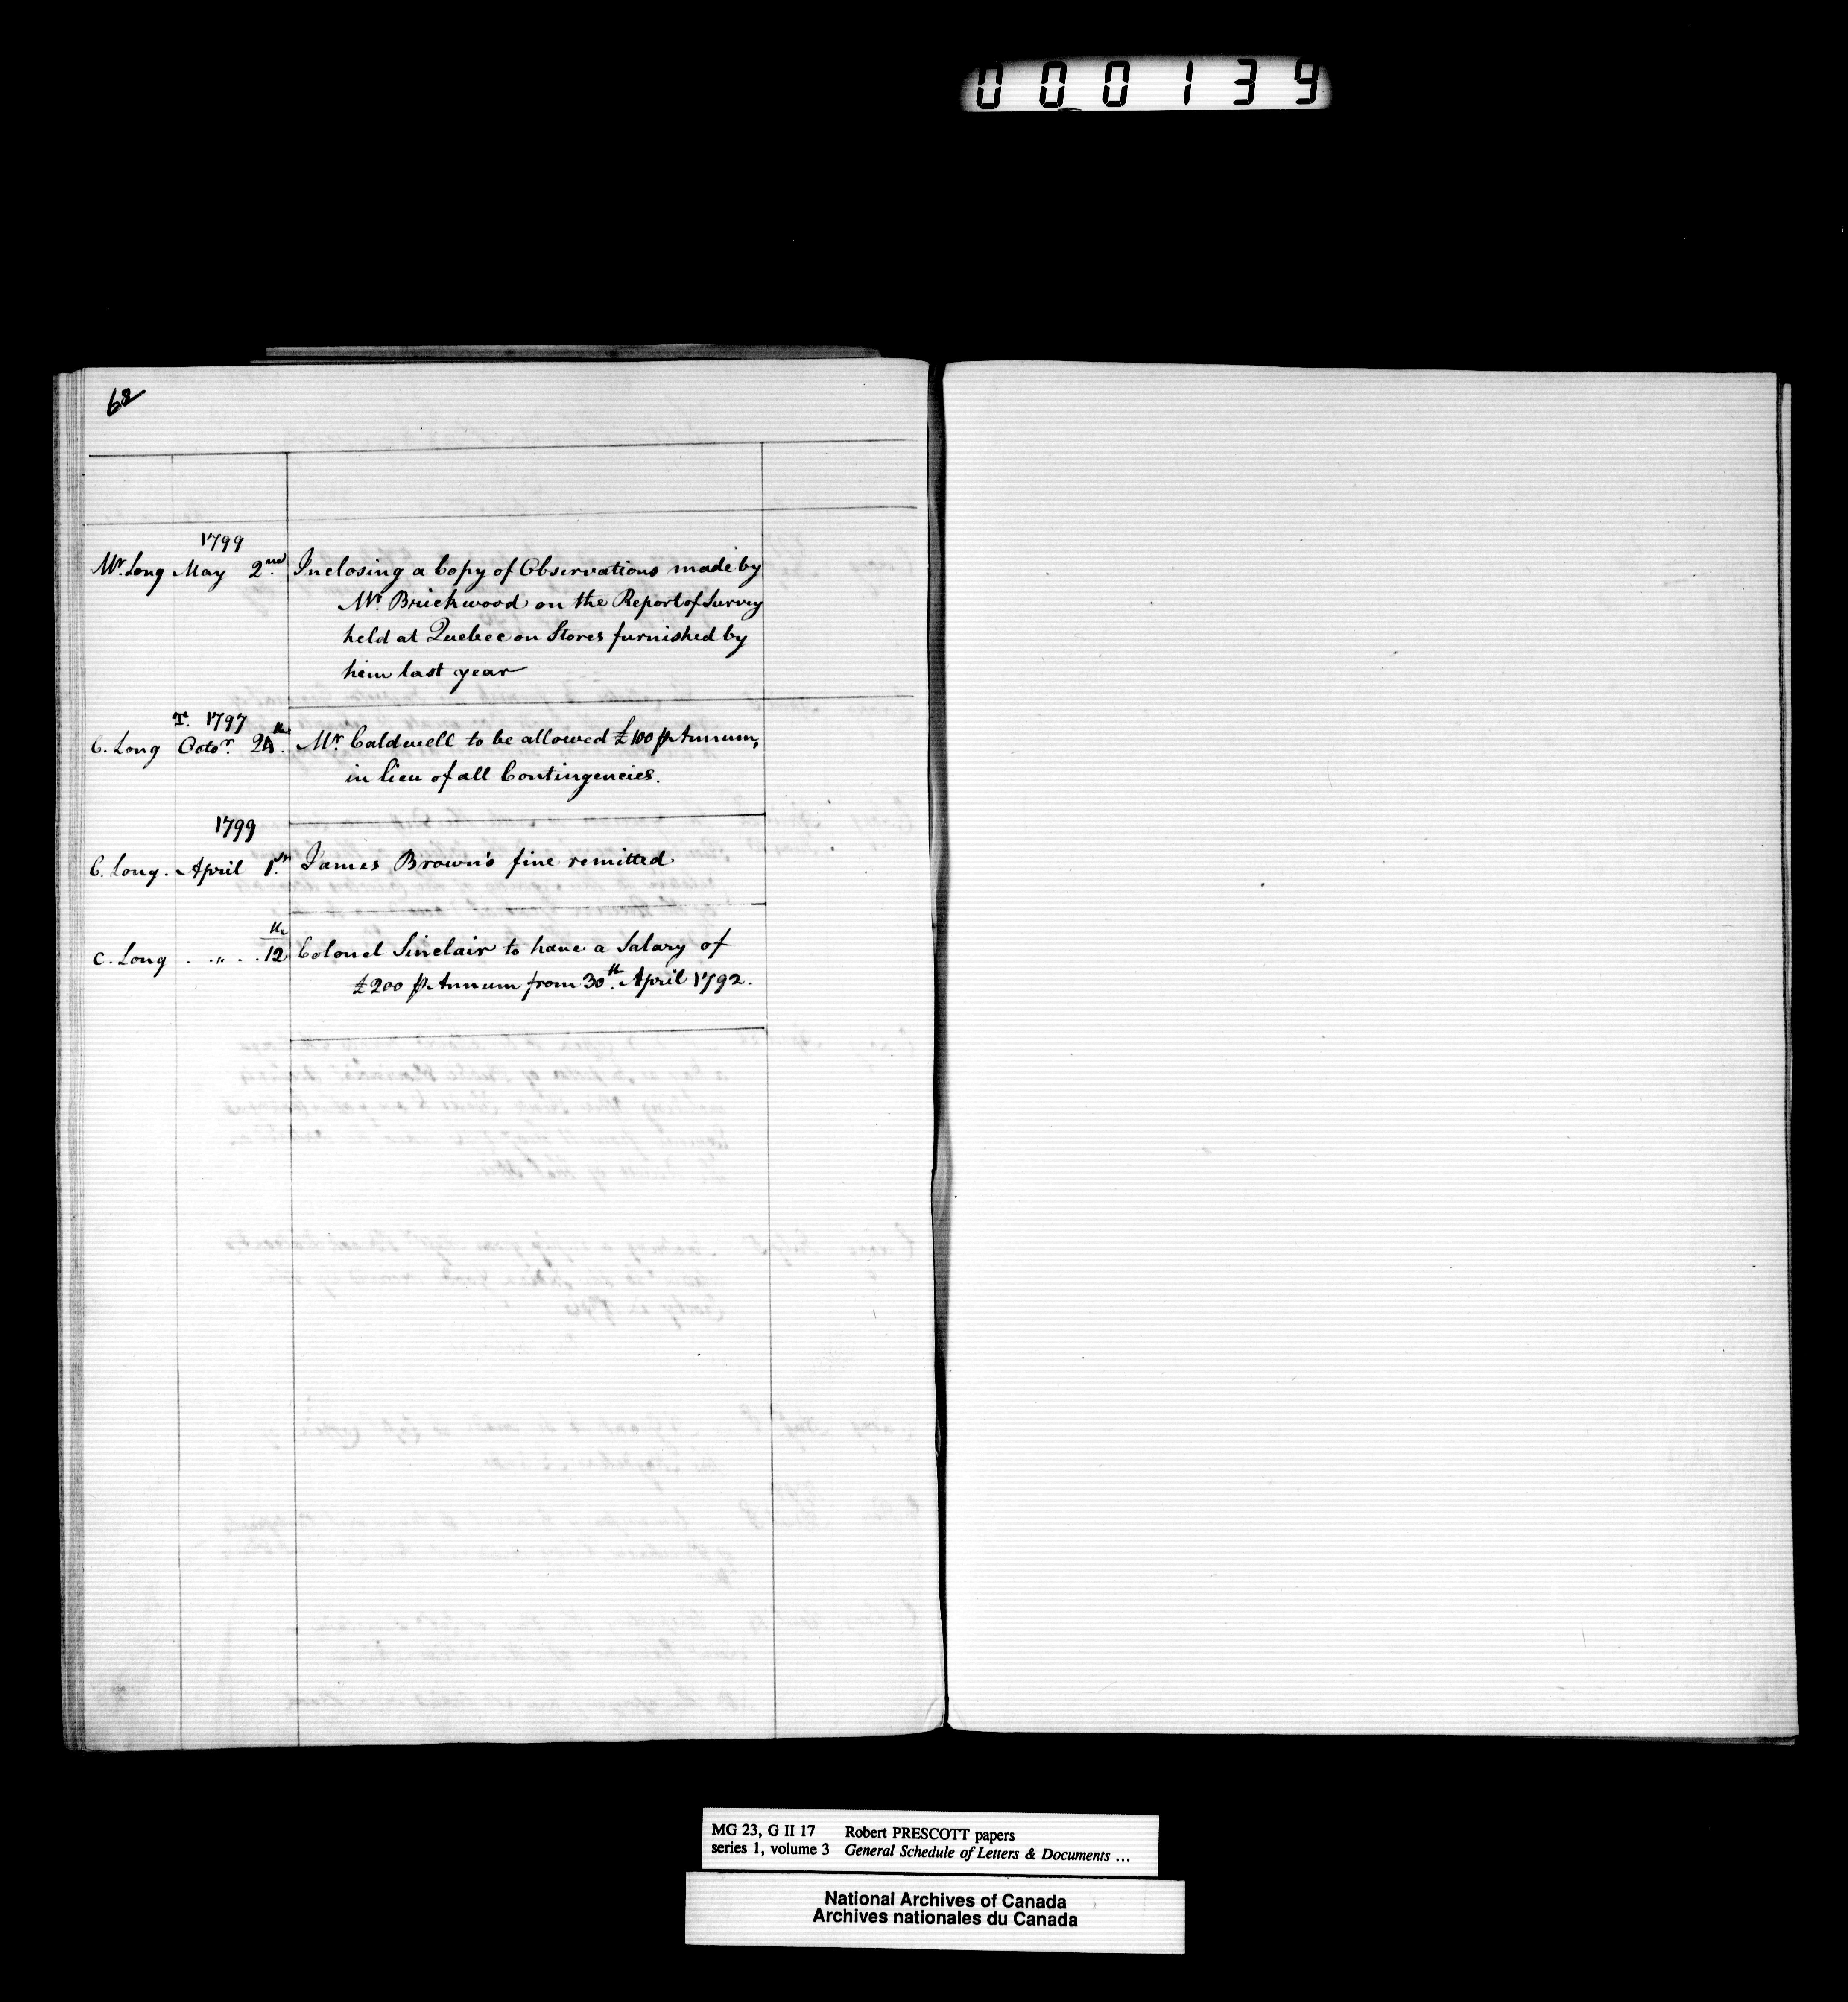 000139
62
1799
Mr. Long May 2nd. Inclosing a Copy of Observations made by
Mr. Brickwood on the Report of Survey
held at Quebec on Stores furnished by
him last year
T. 1797
C. Long Octor. 24th. Mr. Caldwell to be allowed £100 ⅌ Annum,
in lieu of all Contingencies.
1799
C. Long. April 1st. James Brown's fine remitted
C. Long . . „ . . 12th Colonel Sinclair to have a Salary of
£200 ⅌ Annum from 30th. April 1792.
MG 23, G II 17 Robert PRESCOTT papers
series 1, volume 3 General Schedule of Letters & Documents ...
National Archives of Canada
Archives nationales du Canada